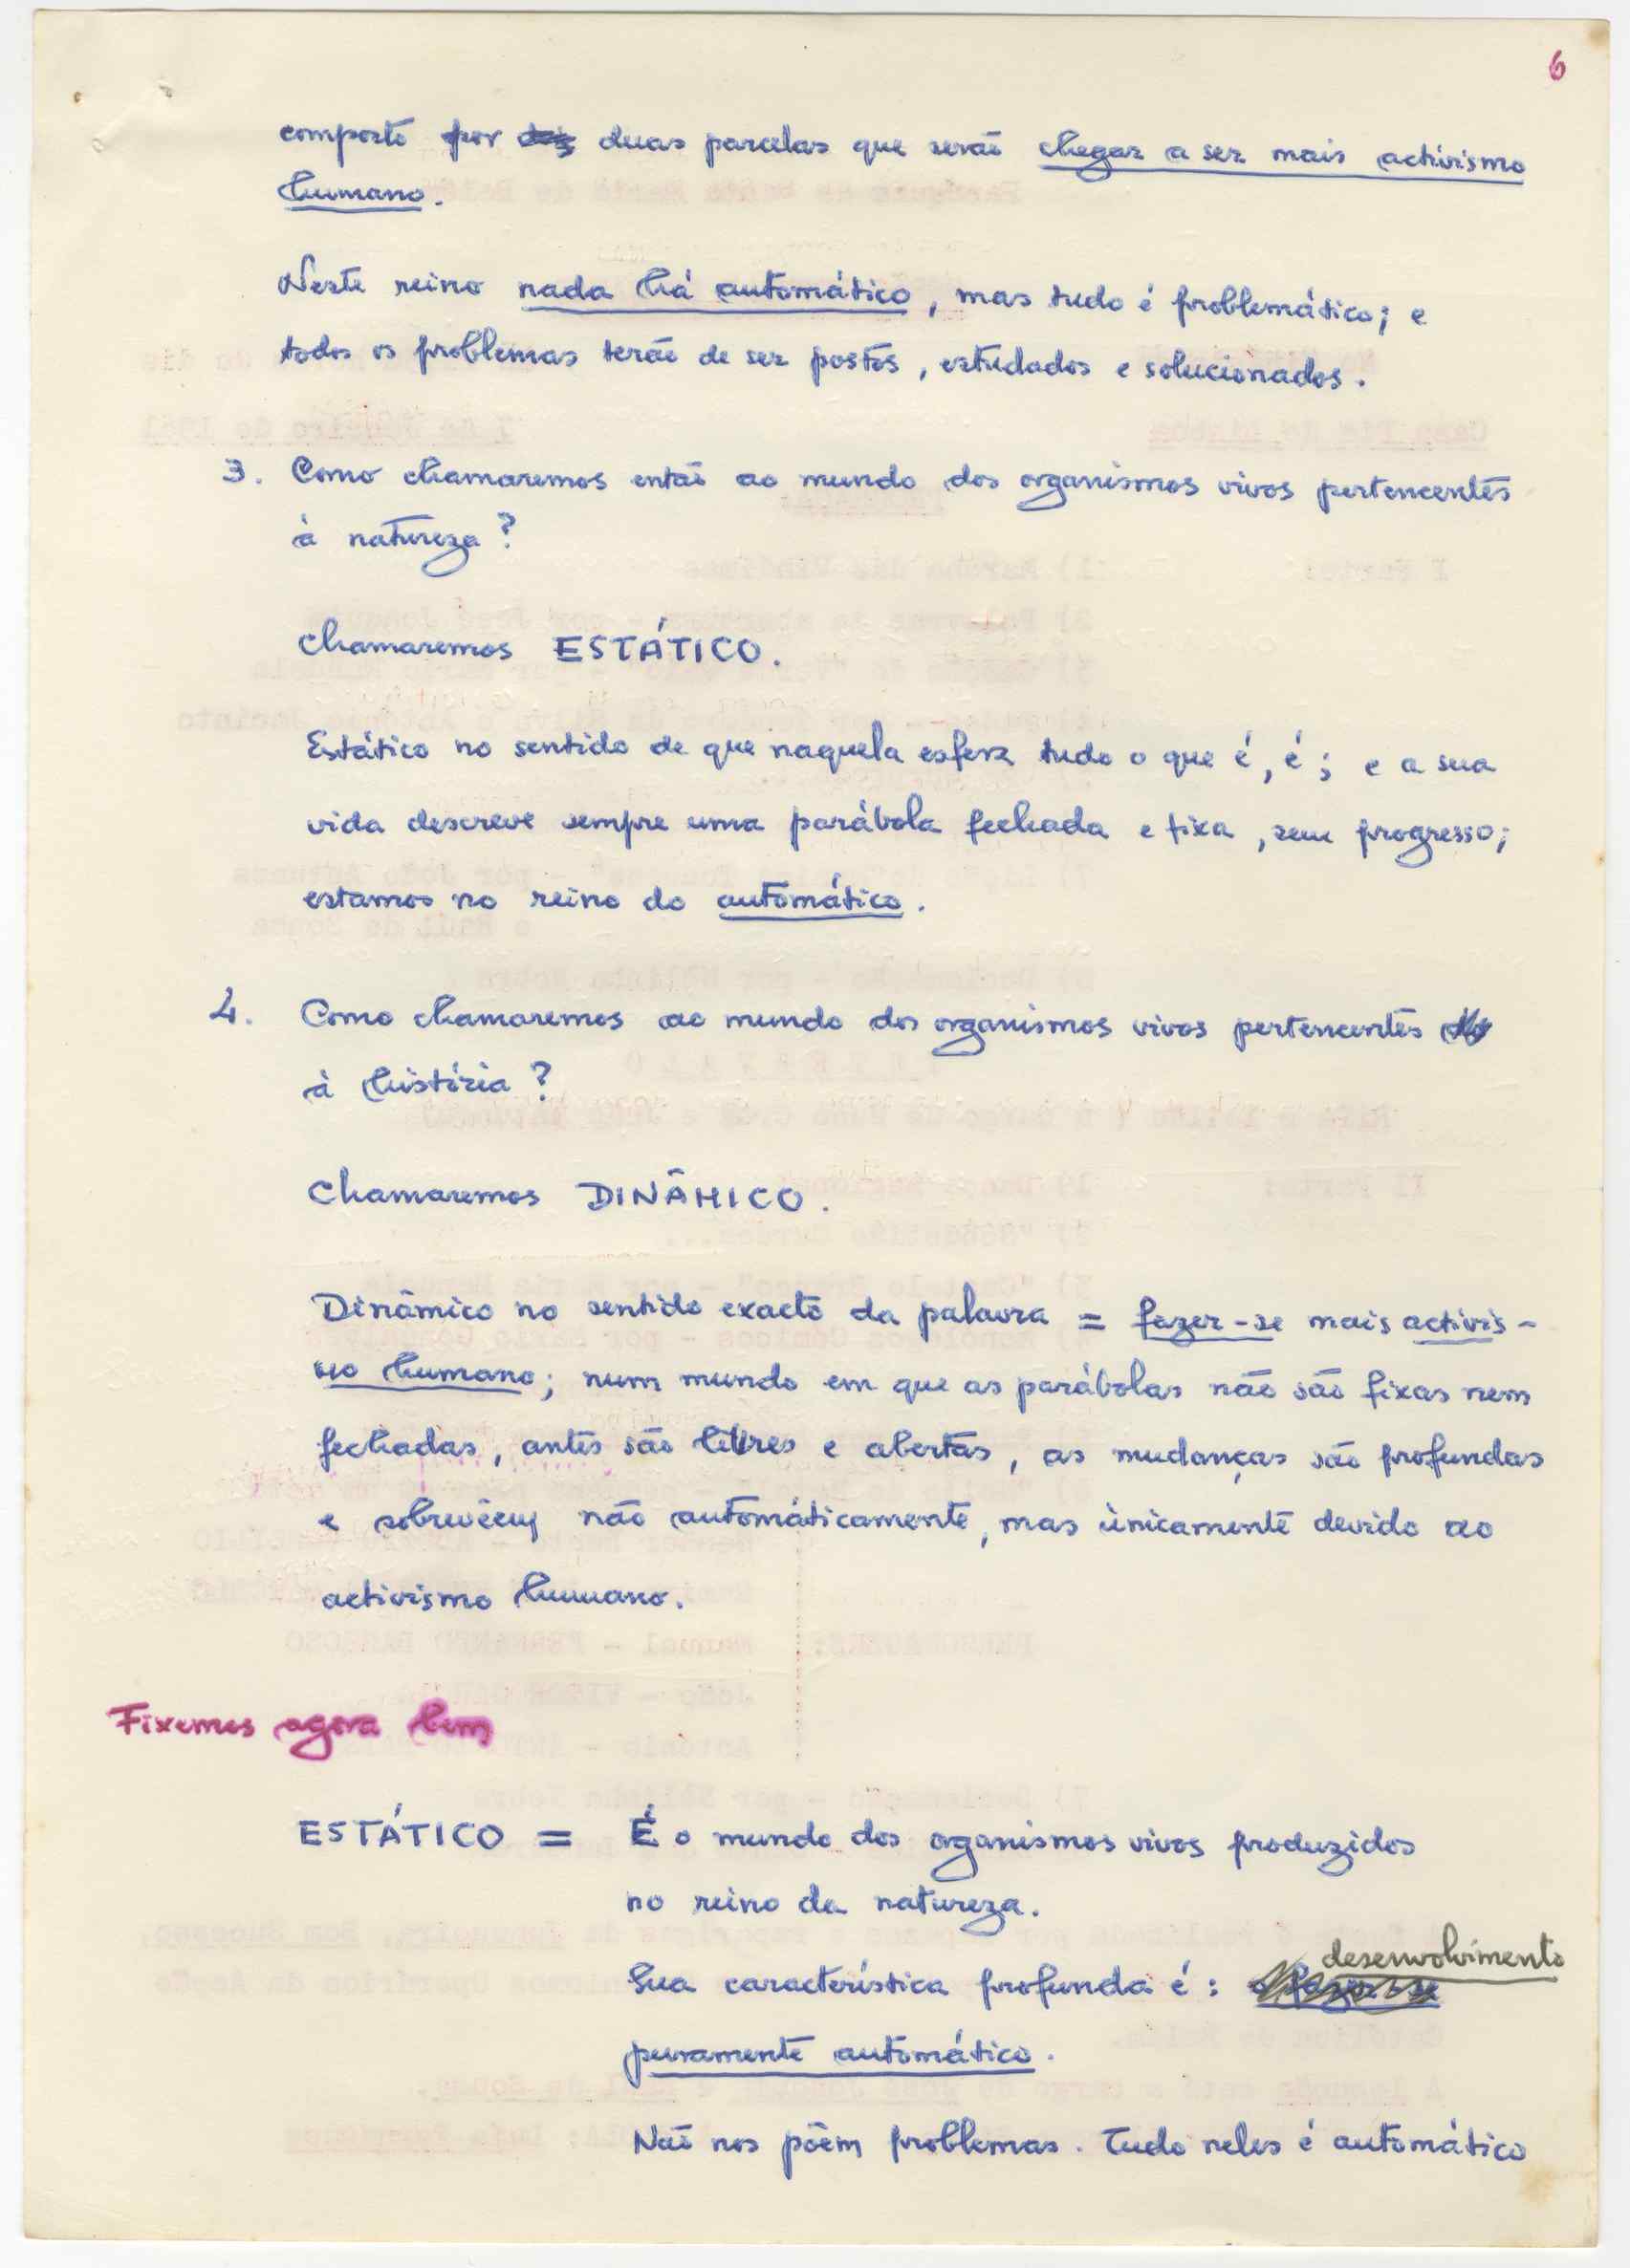 6
composto por duas parcelas que serão chegar a ser mais activismo
humano.
Neste reino nada há automático, mas tudo é problemático; e
todos os problemas terão de ser postos, estudados e solucionados.
3. Como chamaremos então ao mundo dos organismos vivos pertencentes
à natureza?
Chamaremos ESTÁTICO.
Estático no sentido de que naquela esfera tudo o que é, é; e a sua
vida descreve sempre uma parábola fechada e fixa, sem progresso;
estamos no reino do automático.
4. Como chamaremos ao mundo dos organismos vivos pertencentes
à história?
Chamaremos DINÂMICO.
Dinâmico no sentido exacto da palavra = fazer-se mais activis-
mo humano; num mundo em que as parábolas não são fixas nem
fechadas, antes são livres e abertas, as mudanças são profundas
e sobrevêem não automáticamente, mas ùnicamente devido ao
activismo humano.
Fixemos agora bem
ESTÁTICO = É o mundo dos organismos vivos produzidos
no reino da natureza.
Sua característica profunda é: desenvolvimento
puramente automático.
Não nos põem problemas. Tudo neles é automático